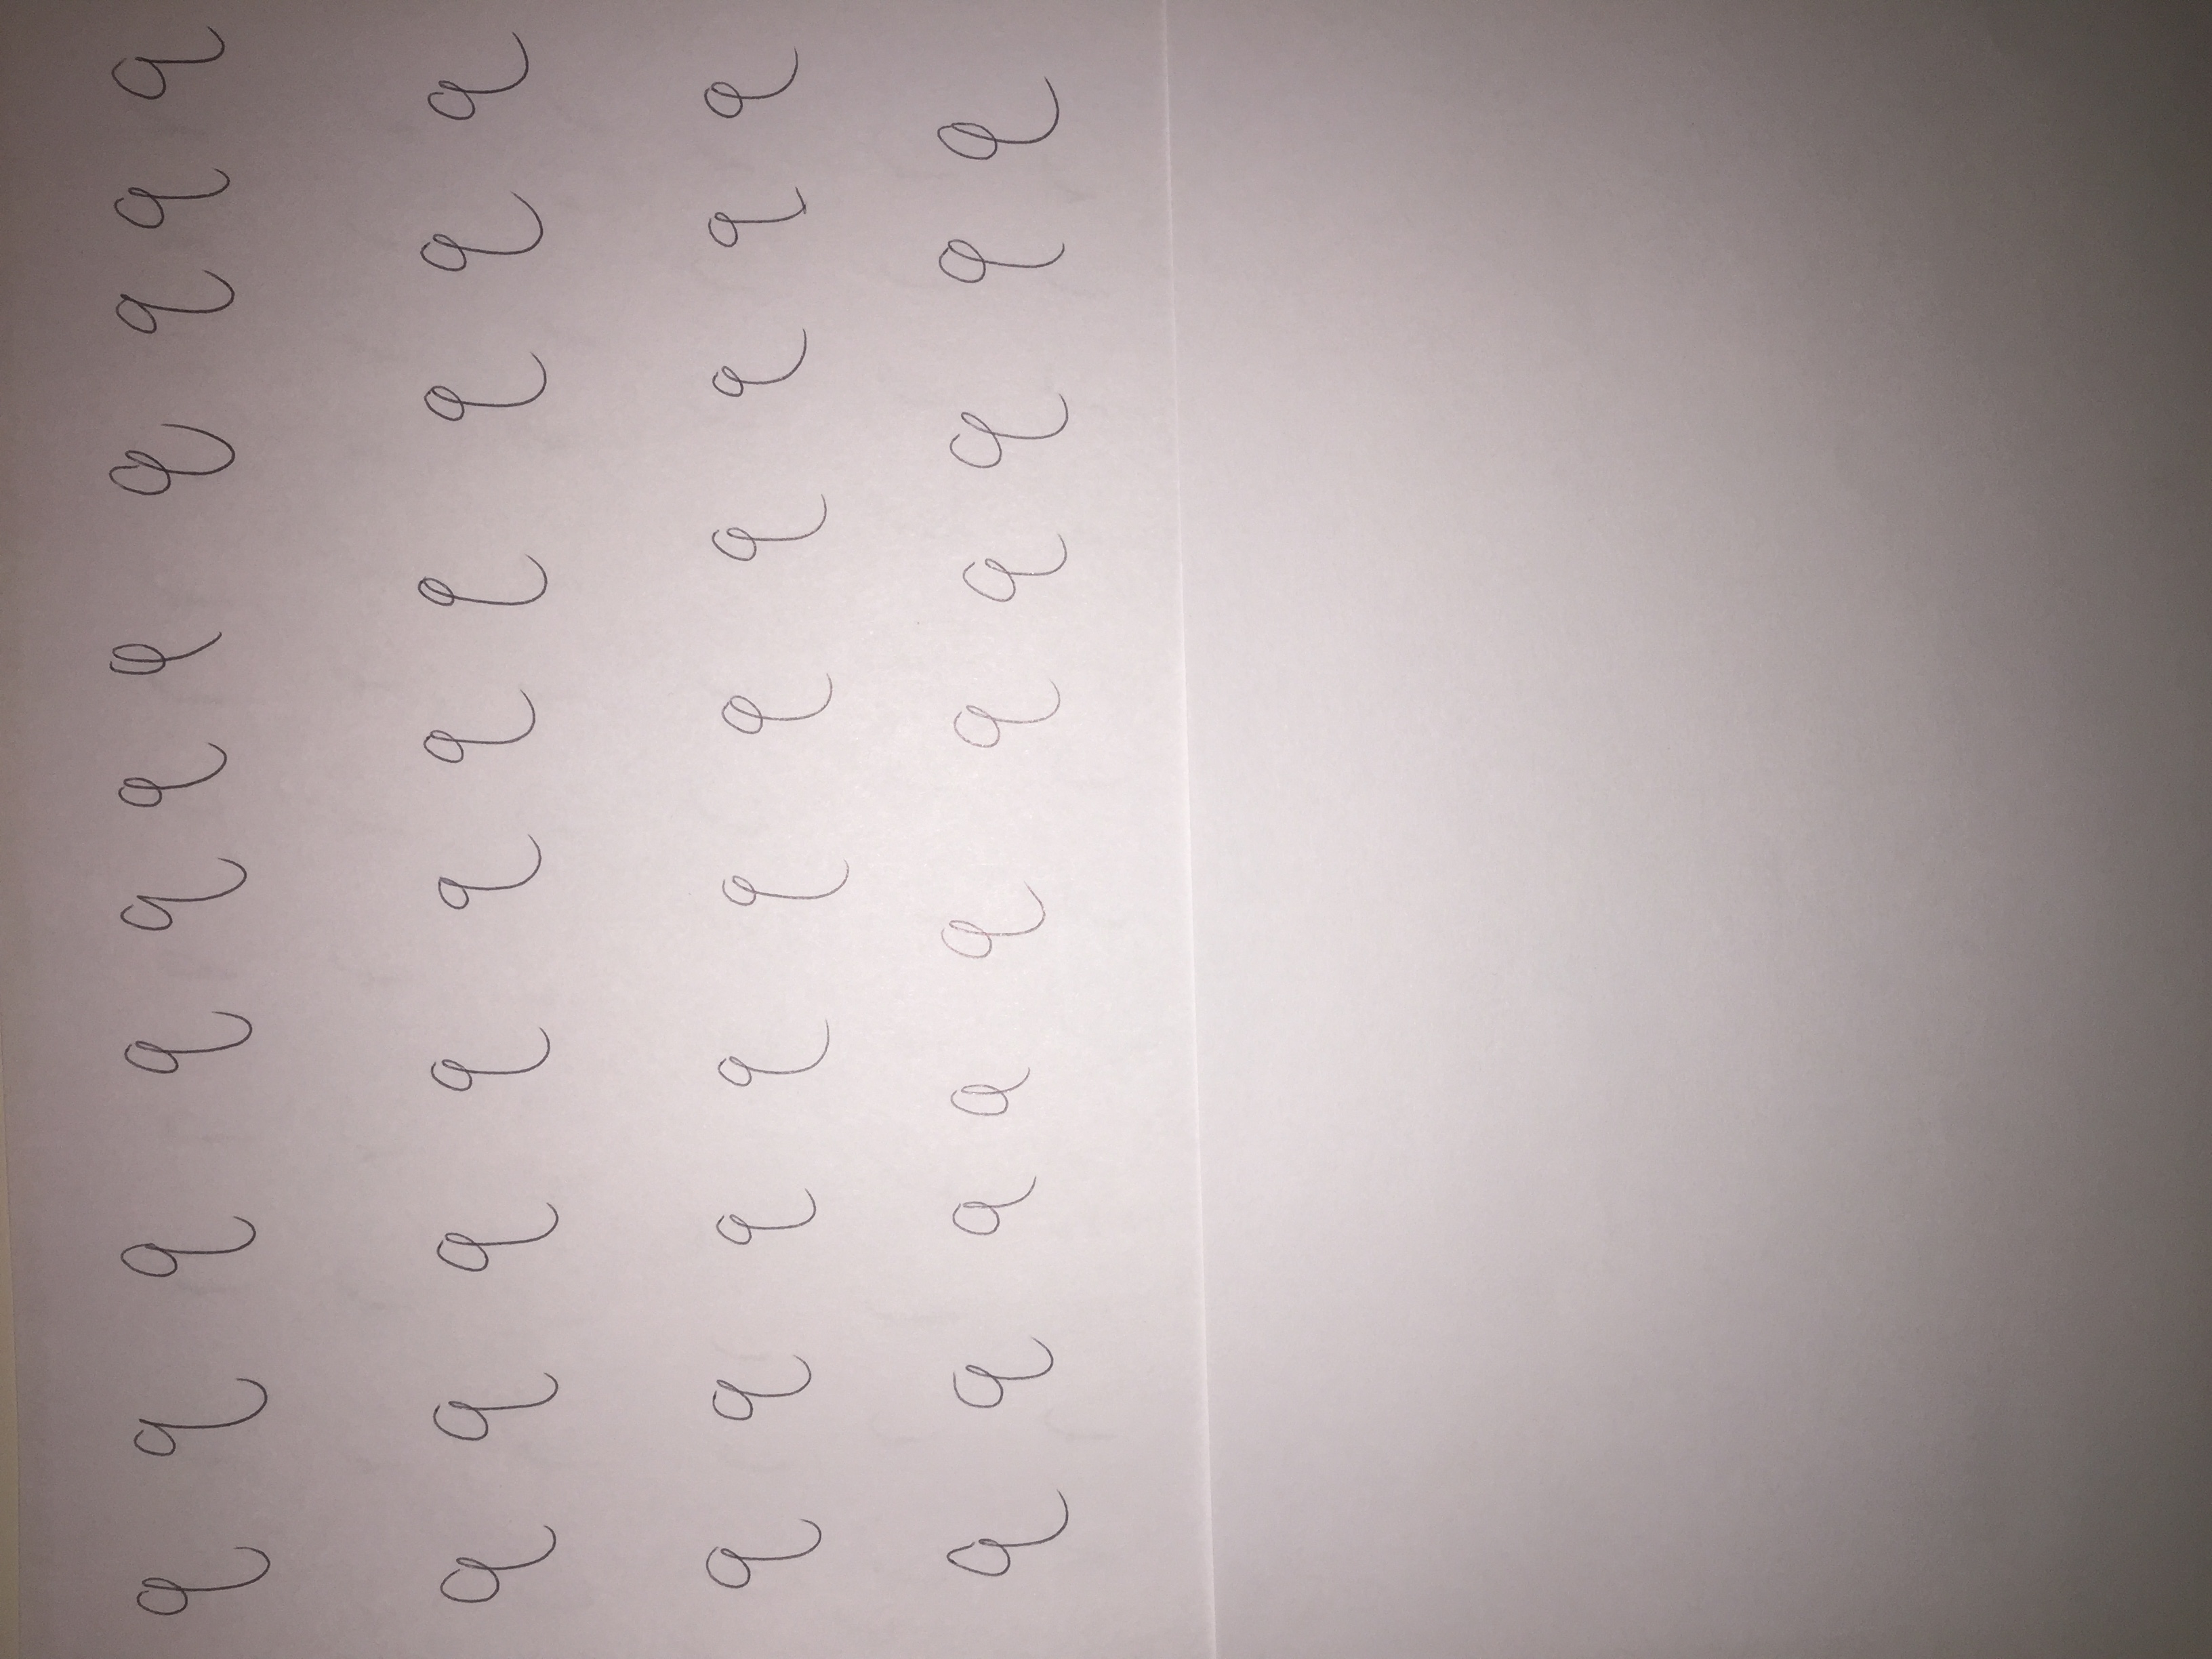 q q q q q q q q q q q
q q q q q q q q q q
q q q q q q q q q q
q q q q q q q q q q